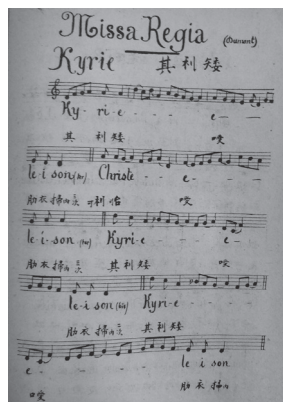 Missa Regia (Dumont)
Kyrie 其利矮
Ky- ri- e - - - e- —
其 利矮
le-i son (bis) Christe - - e- - - -
肋衣 利
le-i-son (bis) Kyri-e - - - e-
肋衣 其利矮
le-i son (bis) Kyri-e - - - -
肋衣 其利矮
e - - - - - - le i son
肋衣